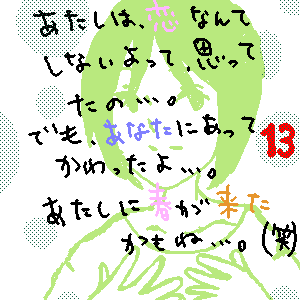 あたしは、恋なんて
しないよって、思って
たの…。
でも、あなたにあって
かわったよ…。
13
あたしに春が来た
かもね…。(笑)